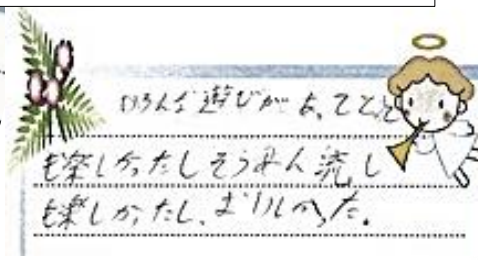 いろんな遊びがあってとて
も楽しかったしそうめん流し
も楽しかったし、おいしかった。